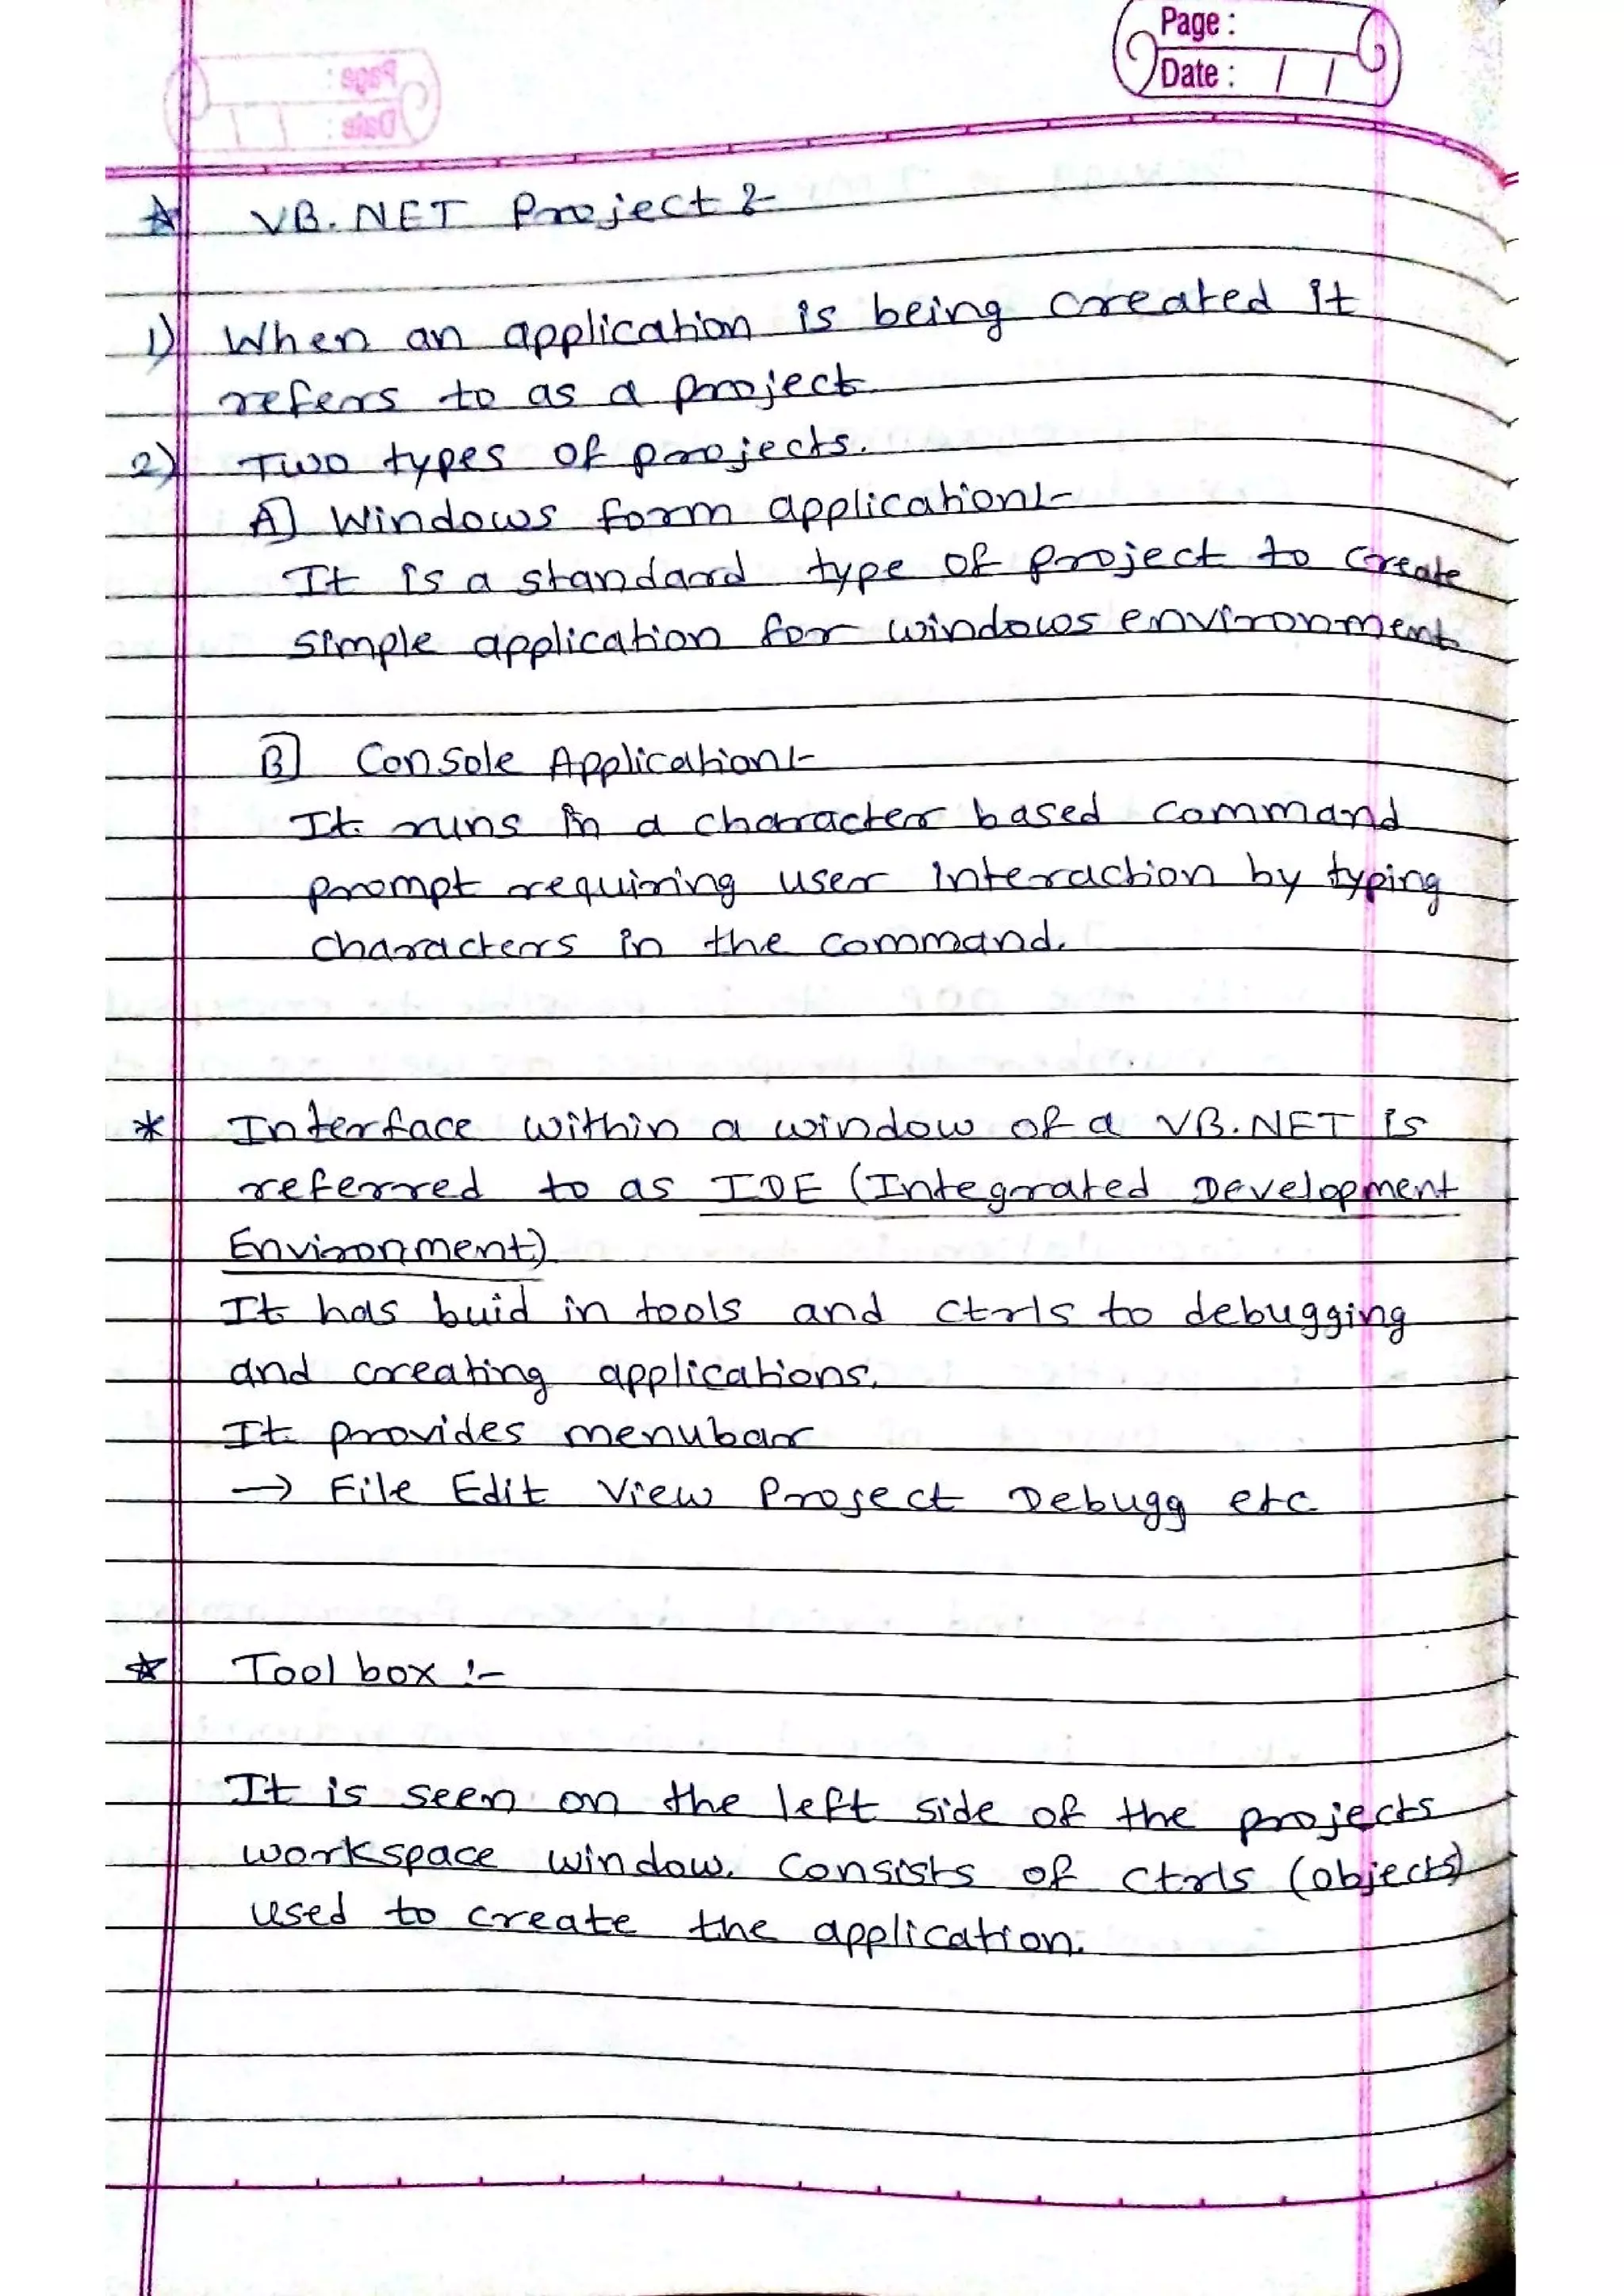 Page :
Date : / /
☆ VB.NET Project :-
1) When an application is being created it
refers to as a project
2) Two types of projects.
A] Windows form application:-
It is a standard type of project to create
simple application for windows environment
B] Console Application:-
It runs in a character based command
prompt requiring user interaction by typing
characters in the command.
* Interface within a window of a VB.NET is
referred to as IDE (Integrated Development
Environment)
It has buid in tools and ctrls to debugging
and creating applications.
It provides menubar
→ File Edit View Project Debugg etc
☆ Tool box :-
It is seen on the left side of the projects
workspace window. Consists of ctrls (objects)
used to create the application.